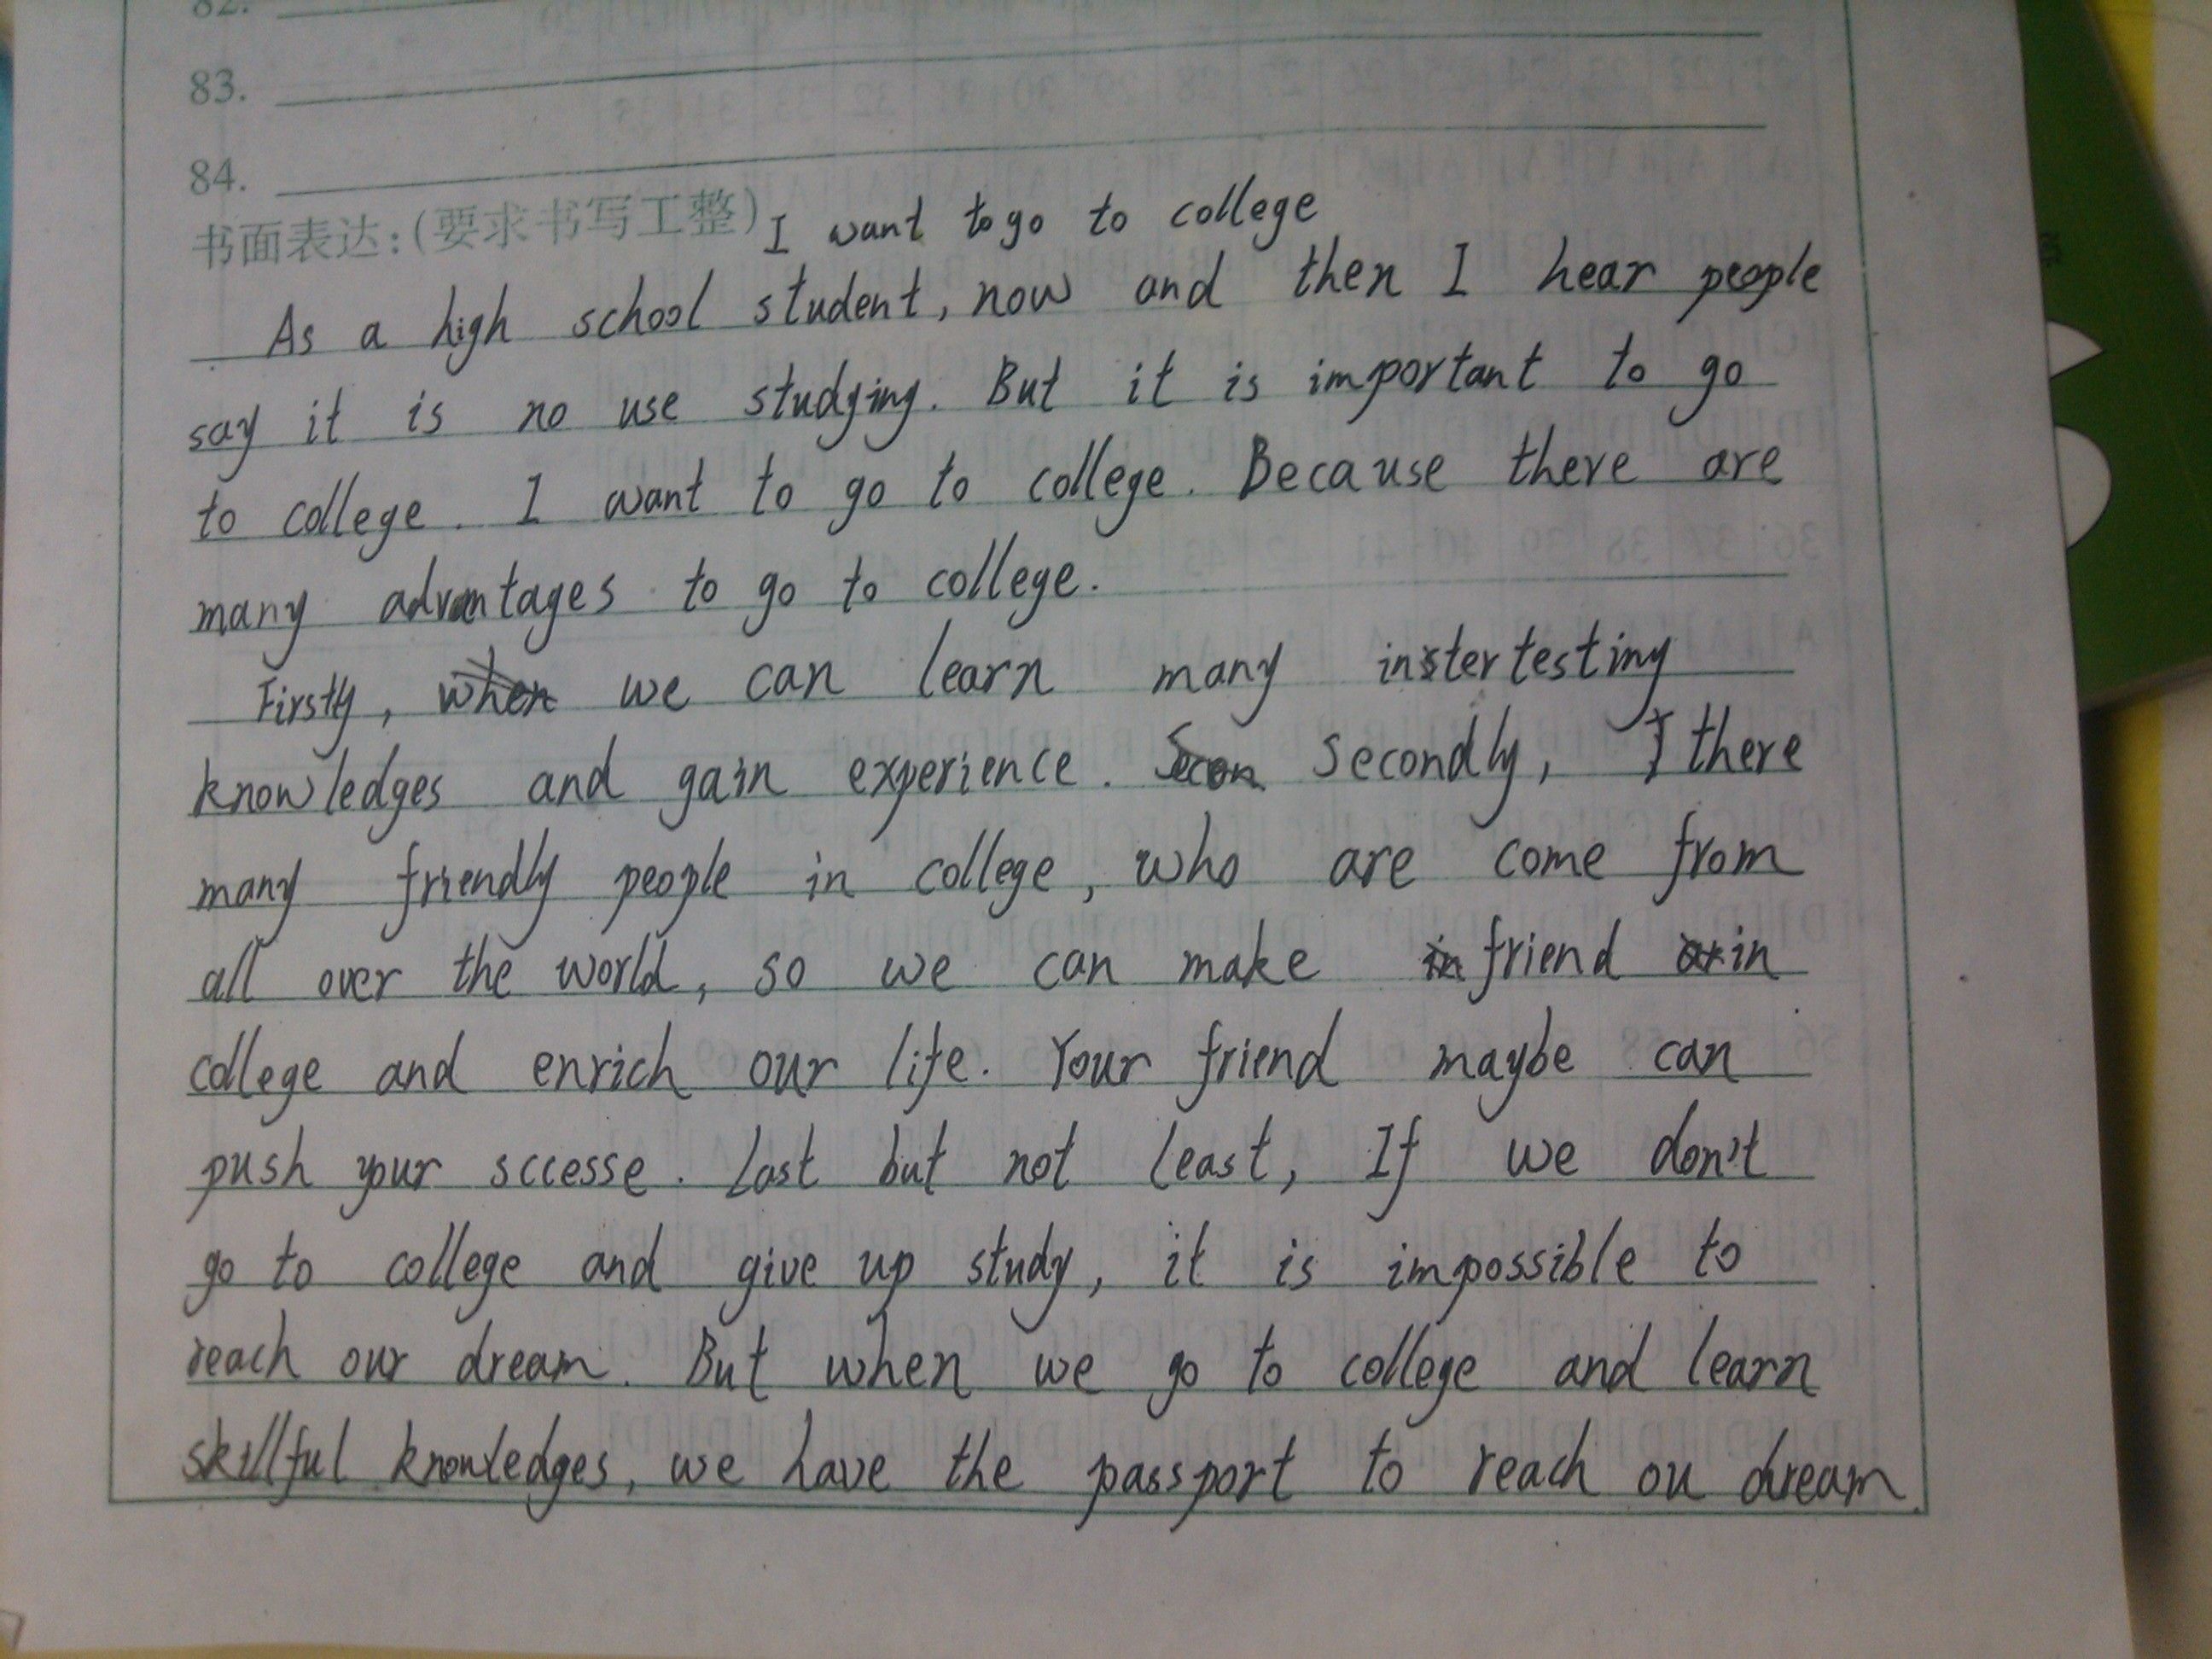 82.
83.
84.
书面表达:(要求书写工整) I want to go to college
As a high school student, now and then I hear people
say it is no use studying. But it is important to go
to college. I want to go to college. Because there are
many advantages to go to college.
Firstly, when we can learn many instertesting
knowledges and gain experience. Secon Secondly, I there
many friendly people in college, who are come from
all over the world, so we can make in friend ar in
college and enrich our life. Your friend maybe can
push your sccesse. Last but not least, If we don't
go to college and give up study, it is impossible to
reach our dream. But when we go to college and learn
skillful knowledges, we have the passport to reach ou dream.